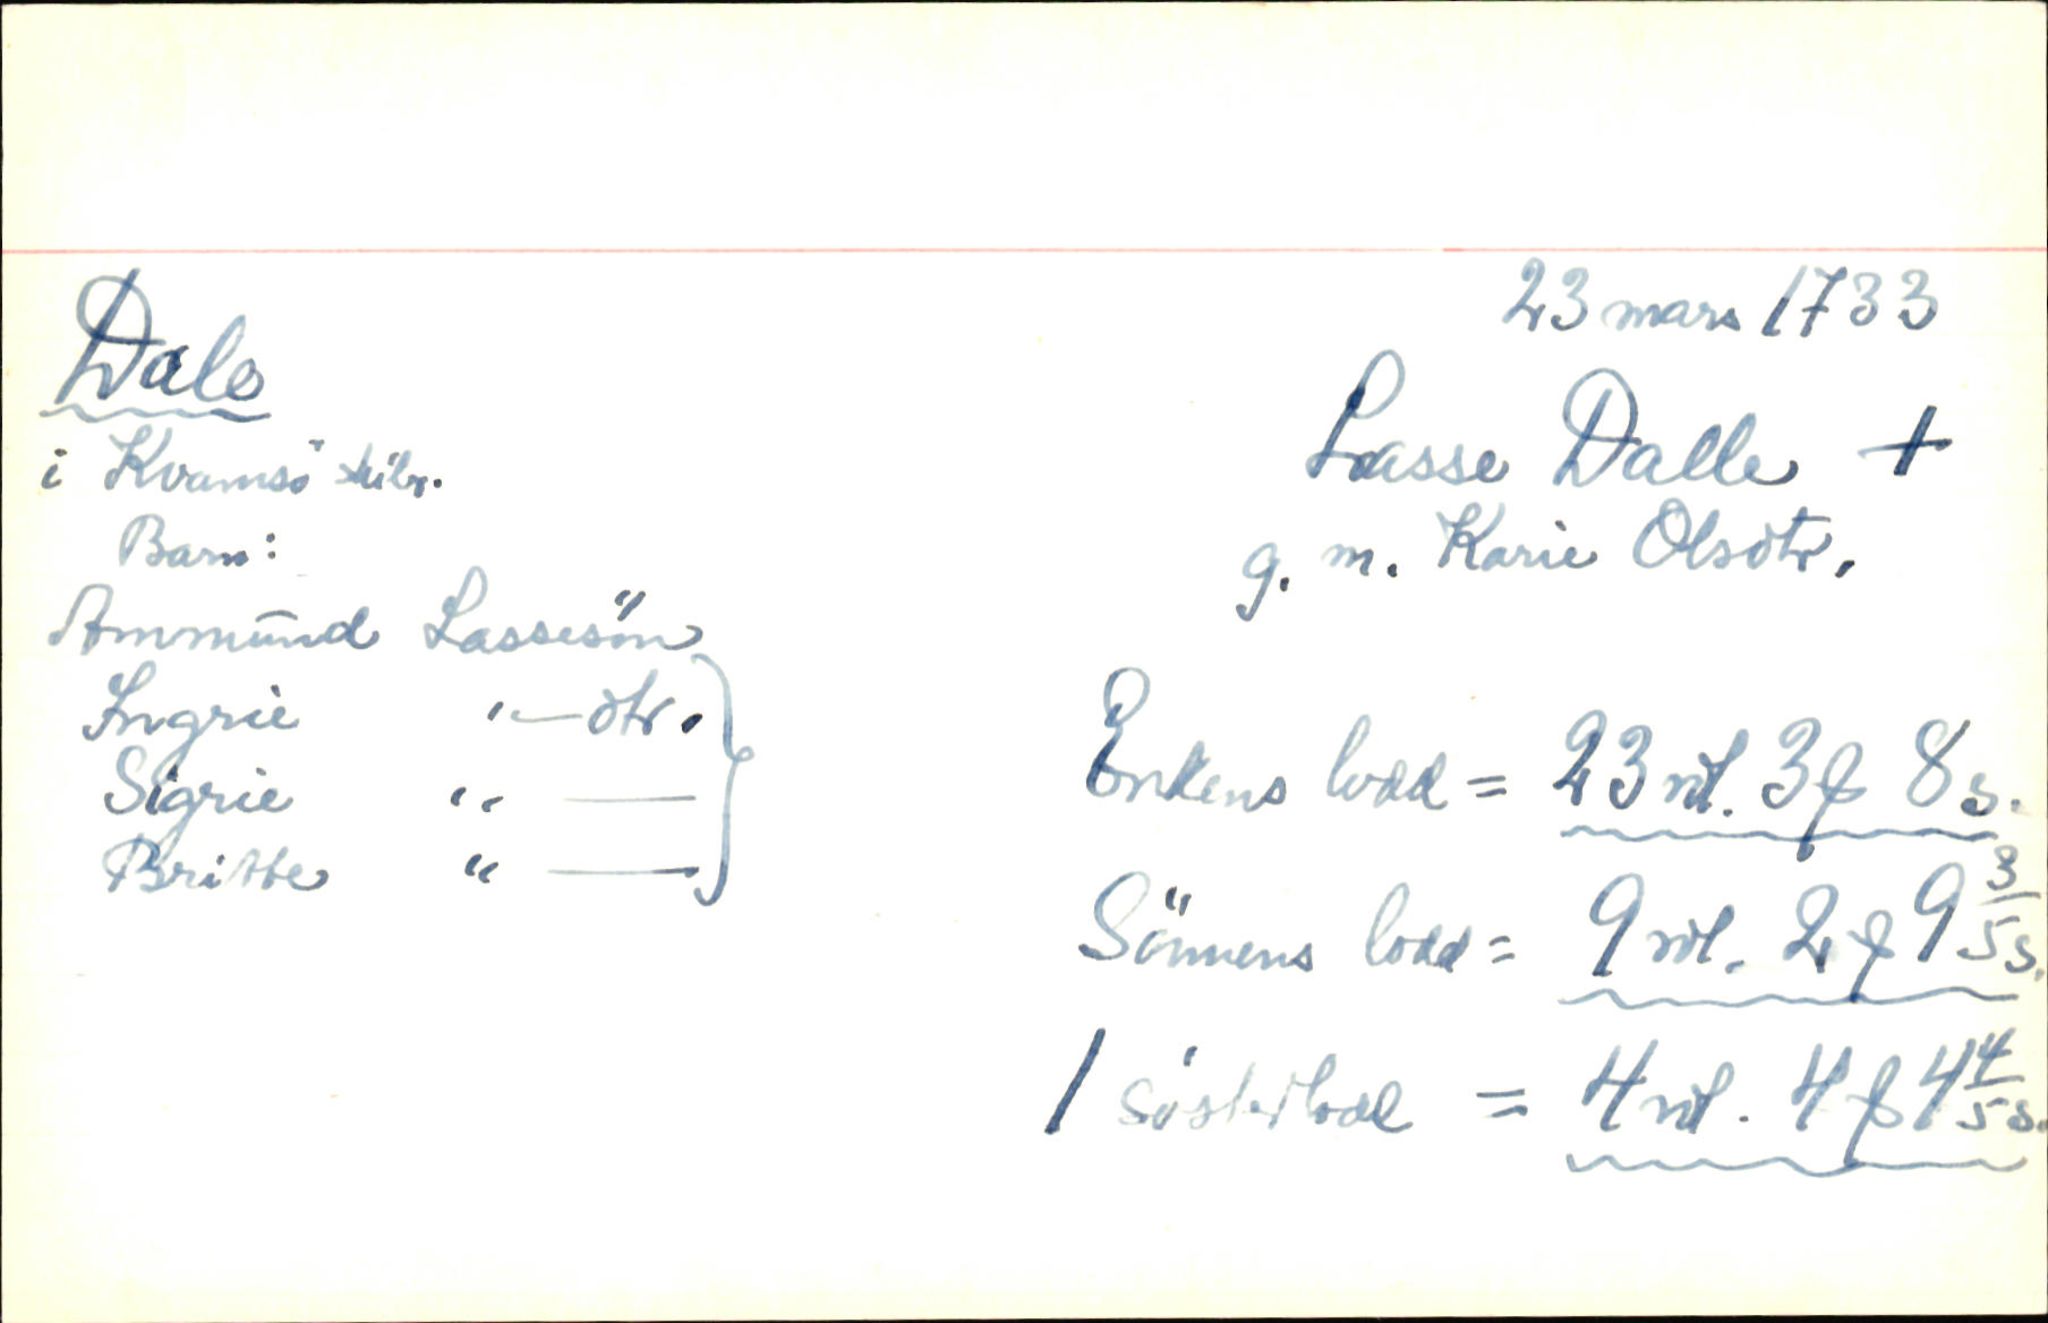 23 mars 1733
Dale
i Kvamsö skibr.
Lasse Dalle +
g. m. Karie Olsdtr.
Barn:
Ammūnd Lassesön
Ingrie "—dtr.
Sigrie " —
Britte " —
Enkens lodd = 23 rdl. 3 ƒ 8 s.
Sönnens lodd = 9 rdl. 2 ƒ 9 3/5 s.
1 söslerlodd = 4 rdl. 4 ƒ 4 4/5 s.